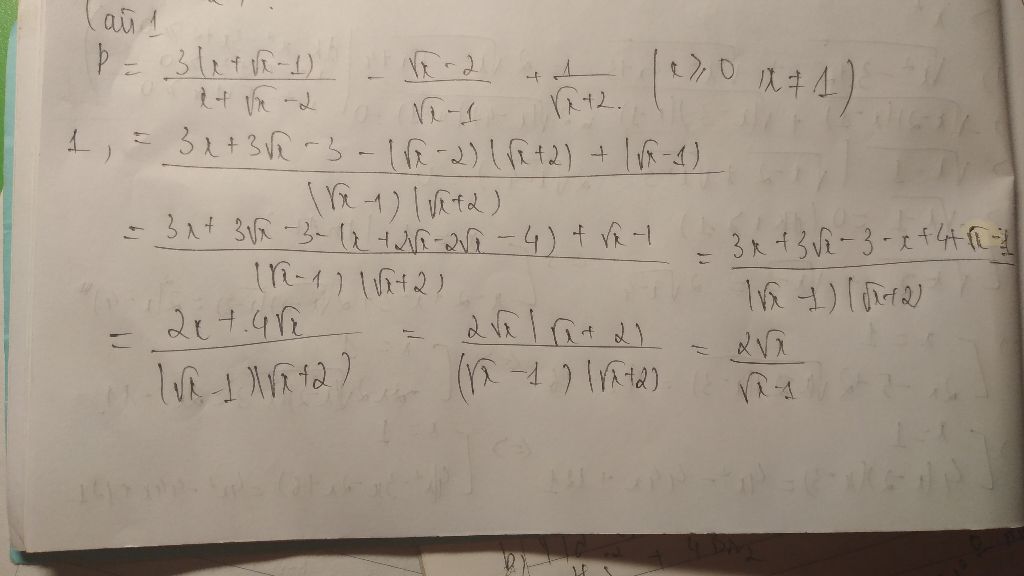 Câu 1
P = 3(x + √x - 1) / x + √x - 2 - √x - 2 / √x - 1 + 1 / √x + 2. (x ≥ 0 x ≠ 1)
1, = 3x + 3√x - 3 - (√x - 2)(√x + 2) + (√x - 1) / (√x - 1)(√x + 2)
= 3x + 3√x - 3 - (x + 2√x - 2√x - 4) + √x - 1 / (√x - 1)(√x + 2) = 3x + 3√x - 3 - x + 4 + √x - 1 / (√x - 1)(√x + 2)
= 2x + 4√x / (√x - 1)(√x + 2) = 2√x(√x + 2) / (√x - 1)(√x + 2) = 2√x / √x - 1